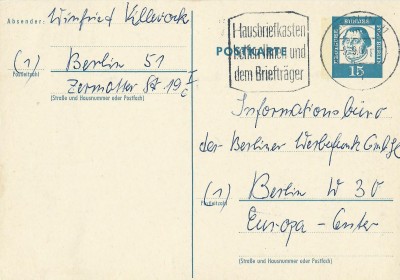 Absender: Winfried Killewock
(1) Berlin 51
Postleitzahl
Zermatter St 19 I c
(Straße und Hausnummer oder Postfach)
Hausbriefkasten
helfen Ihnen und
dem Briefträger
POSTKARTE
15
Informationsbüro
der Berliner Werbefunk GmbH
(1) Berlin W 30
Postleitzahl
Europa-Center
(Straße und Hausnummer oder Postfach)